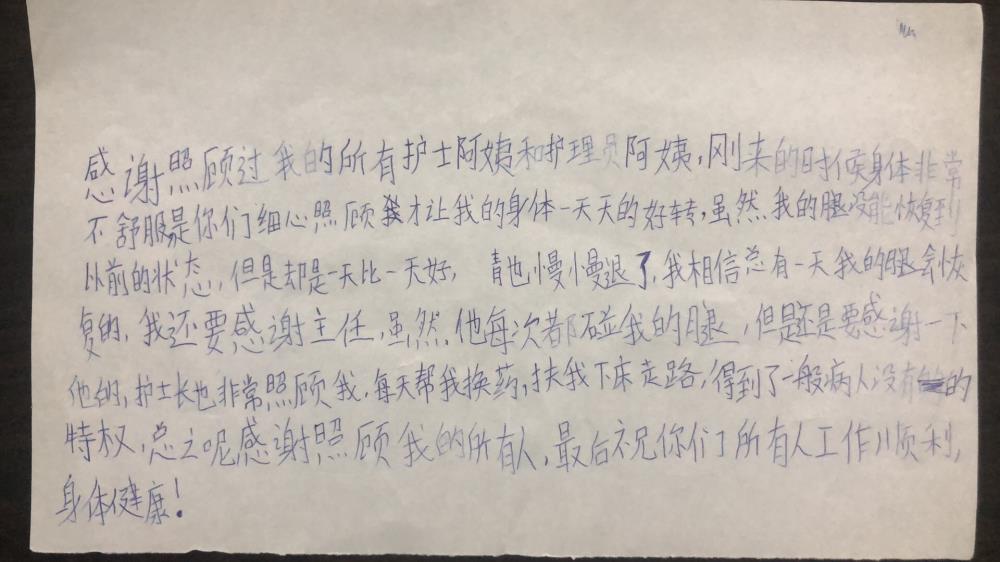 感谢照顾过我的所有护士阿姨和护理员阿姨，刚来的时候身体非常
不舒服是你们细心照顾我才让我的身体一天天的好转，虽然我的腿没能恢复到
以前的状态，但是却是一天比一天好， 青也慢慢退了，我相信总有一天我的腿会恢
复的，我还要感谢主任，虽然他每次都碰我的腿，但是还是要感谢一下
他的，护士长也非常照顾我，每天帮我换药，扶我下床走路，得到了一般病人没有的
特权，总之呢感谢照顾我的所有人，最后祝你们所有人工作顺利，
身体健康！